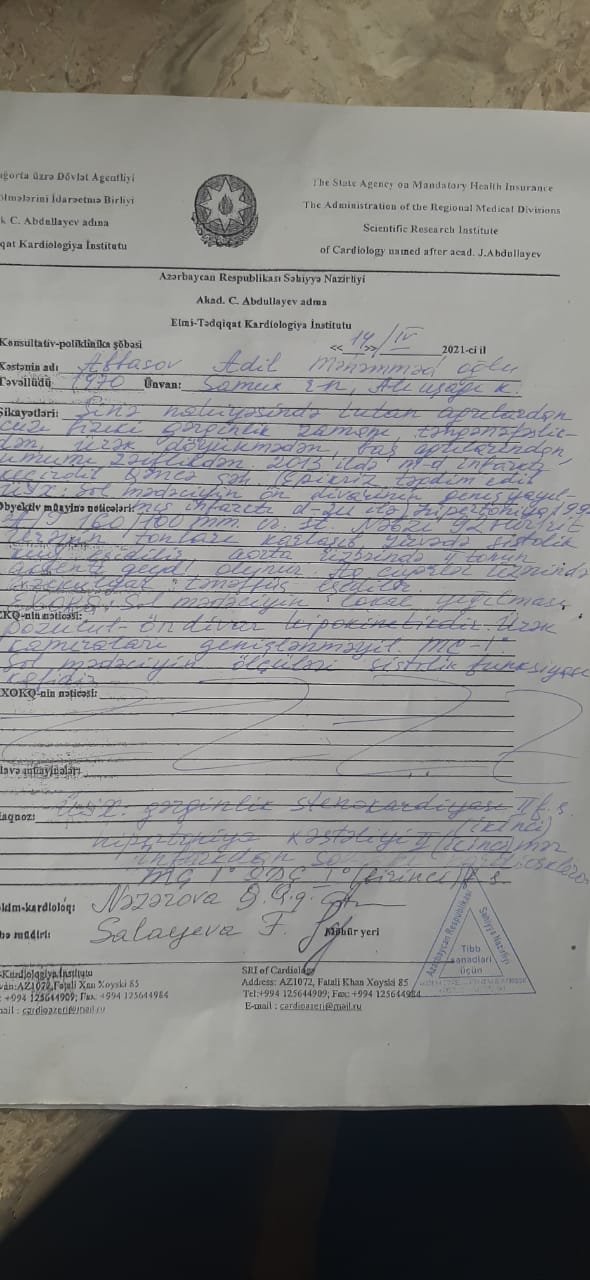 ığorta üzrə Dövlət Agentliyi
ölmələrini İdarəetmə Birliyi
k C. Abdullayev adına
qat Kardiologiya İnstitutu
The State Agency on Mandatory Health Insurance
The Administration of the Regional Medical Divisions
Scientific Research Institute
of Cardiology named after acad. J.Abdullayev
Azərbaycan Respublikası Səhiyyə Nazirliyi
Akad. C. Abdullayev adına
Elmi-Tədqiqat Kardiologiya İnstitutu
Konsultativ-poliklinika şöbəsi
<< 14/IV >> 2021-ci il
Xəstənin adı Abbasov Adil Məhəmməd oğlu
Təvəllüdü 1970 Ünvan: Samux
Şikayətləri: Sinə nahiyəsində tutan ağrılardan
fiziki gərginlik zamanı, təngənəfəslik-
dən, ürək döyünmədən, baş ağrılarından,
ümumi zəiflikdən. 2013 ildə infarkt
keçirdib Gəncə şəh. (Epikriz təqdim edib
Sol mədəciyin ön divarının geniş yayıl-
Obyektiv müayinə nəticələri: mış infarktı
A/T 160/100 mm c. st. Nəbzi 92
tonları karlaşıb, zirvədə sistolik
küy eşidilir, aorta üzərində II tonun
aksenti qeyd olunur. Ağ ciyərlər üzərində
vezikulyar tənəffüs eşidilir
Sol mədəciyin lokal yığılması
EKQ-nin nəticəsi:
pozulub. Ön divar hipokinetikdir. Ürək
kameraları genişlənməyib. MÇ-I°
Sol mədəciyin ölçüləri sistolik funksiyası
kafidir
EXOKQ-nin nəticəsi:
lavə müayinələr:
iaqnoz: ÜİX: gərginlik stenokardiyası II f. s.
(ikinci)
hipertoniya xəstəliyi II (ikinci) mər
infarktdan
MÇ I° (birinci) f. s.
kim-kardioloq: Nəzərova
bə müdiri: Salayeva F.
Möhür yeri
Azərbaycan Respublikası
Səhiyyə Nazirliyi
Tibb
sənədləri
üçün
Kardiologiya İnstitutu
ván:AZ1072,Fətəli Xan Xoyski 85
: +994 125644909; Fax. +994 125644984
mail : cardioazeri@mail.ru
SRI of Cardiology
Address: AZ1072, Fatali Khan Xoyski 85
Tel:+994 125644909; Fax: +994 125644984
E-mail : cardioazeri@mail.ru